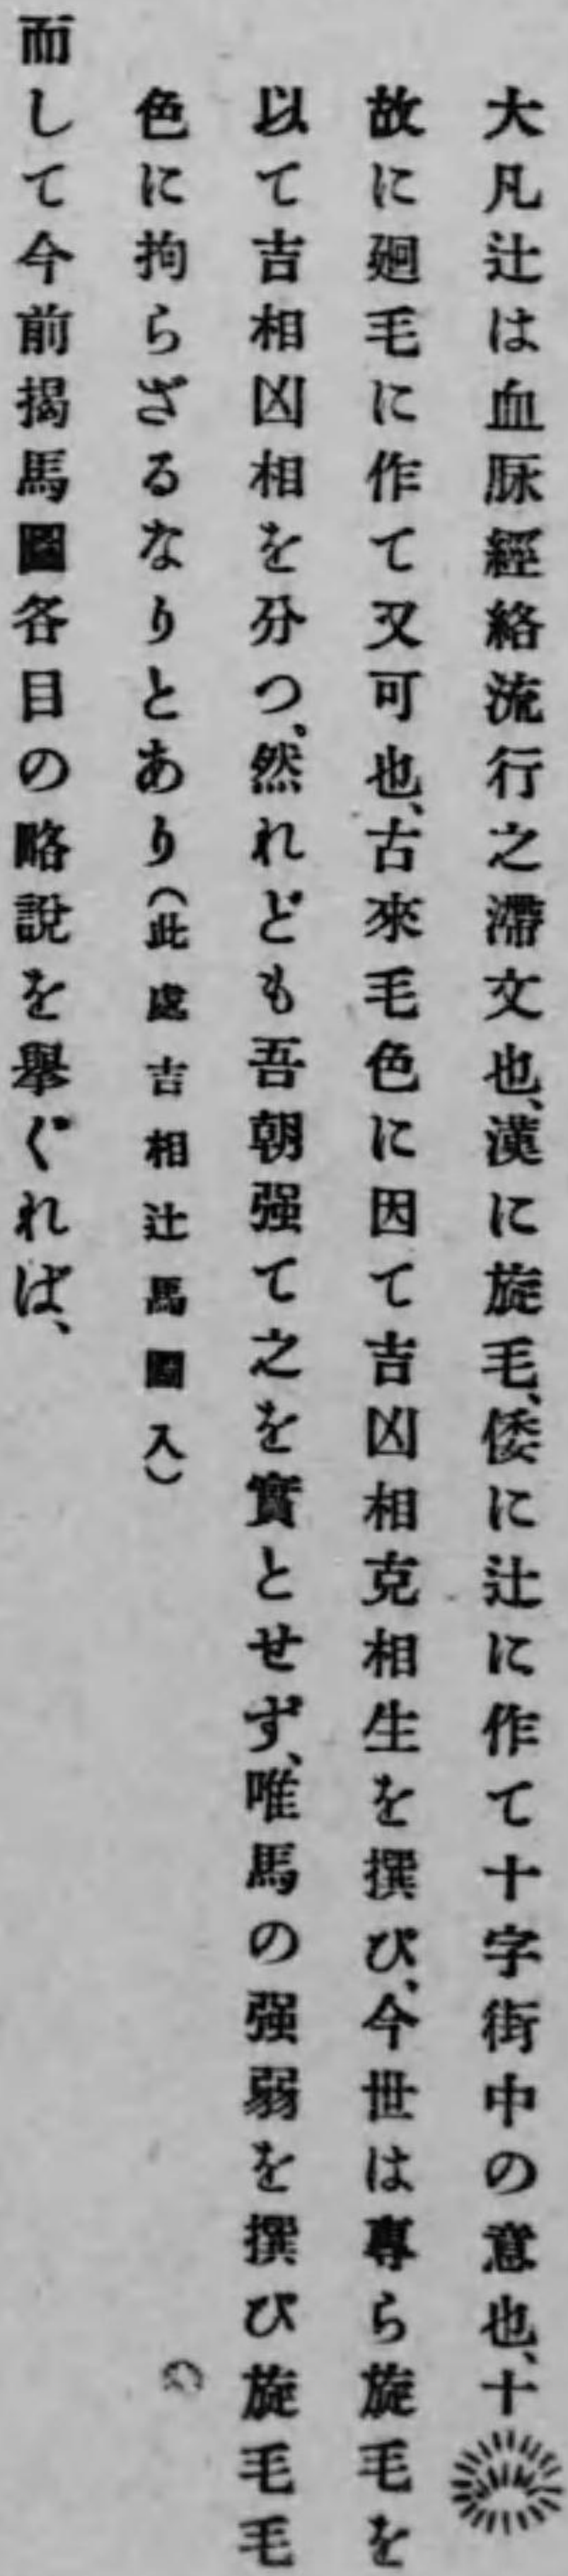 大凡辻は血脈經絡流行之滯文也、漢に旋毛、倭に辻に作て十字街中の意也、十
故に廻毛に作て又可也、古來毛色に因て吉凶相克相生を撰び、今世は專ら旋毛を
以て吉相凶相を分つ、然れども吾朝强て之を實とせず、唯馬の强弱を撰び旋毛毛
色に拘らざるなりとあり（此處吉相辻馬圖入）
而して今前揭馬圖各目の略說を擧ぐれば、